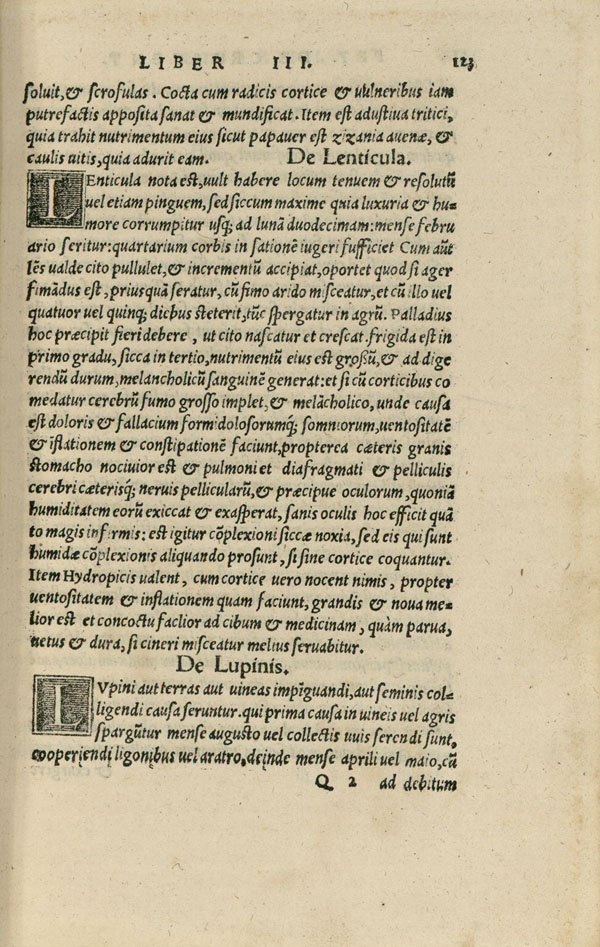 LIBER III. 123
soluit, & scrofulas. Cocta cum radicis cortice & uulneribus iam
putrefactis apposita sanat & mundificat. Item est adustiua tritici,
quia trahit nutrimentum eius sicut papauer est zizania auenæ, &
caulis uitis, quia adurit eam. De Lentícula.
LEnticula nota est, uult habere locum tenuem & resolutū
uel etiam pinguem, sed siccum maxime quia luxuria & hu=
more corrumpitur usq; ad lunā duodecimam: mense febru
ario seritur: quartarium corbis in satione iugeri sufficiet Cum aūt
lēs ualde cito pullulet, & incrementū accipiat, oportet quod si ager
fimādus est, priusquā seratur, cū fimo arido misceatur, et cū illo uel
quatuor uel quinq; diebus steterit, tūc spergatur in agrū. Palladius
hoc præcipit fieri debere, ut cito nascatur et crescat. frigida est in
primo gradu, sicca in tertio, nutrimentū eius est grossū, & ad dige
rendū durum, melancholicū sanguinē generat: et si cū corticibus co
medatur cerebrū fumo grosso implet, & melācholico, unde causa
est doloris & fallacium formidolosorumq; somniorum, uentositatē
& īflationem & constipationē faciunt, propterea cæteris granis
stomacho nociuior est & pulmoni et diafragmati & pelliculis
cerebri cæterisq; neruis pellicularū, & præcipue oculorum, quoniā
humiditatem eorū exiccat & exasperat, sanis oculis hoc efficit quā
to magis infirmis: est igitur cōplexioni siccæ noxia, sed eis qui sunt
humidæ cōplexionis aliquando prosunt, si sine cortice coquantur.
Item Hydropicis ualent, cum cortice uero nocent nimis, propter
uentositatem & inflationem quam faciunt, grandis & noua me=
lior est et concoctu faclior ad cibum & medicinam, quàm parua,
uetus & dura, si cineri misceatur melius seruabitur.
De Lupínis.
LVpini aut terras aut uineas impīguandi, aut seminis col=
ligendi causa seruntur. qui prima causa in uineis uel agris
spargūtur mense augusto uel collectis uuis serendi sunt,
cooperiendi ligonibus uel aratro, deinde mense aprili uel maio, cū
Q 2 ad debitum